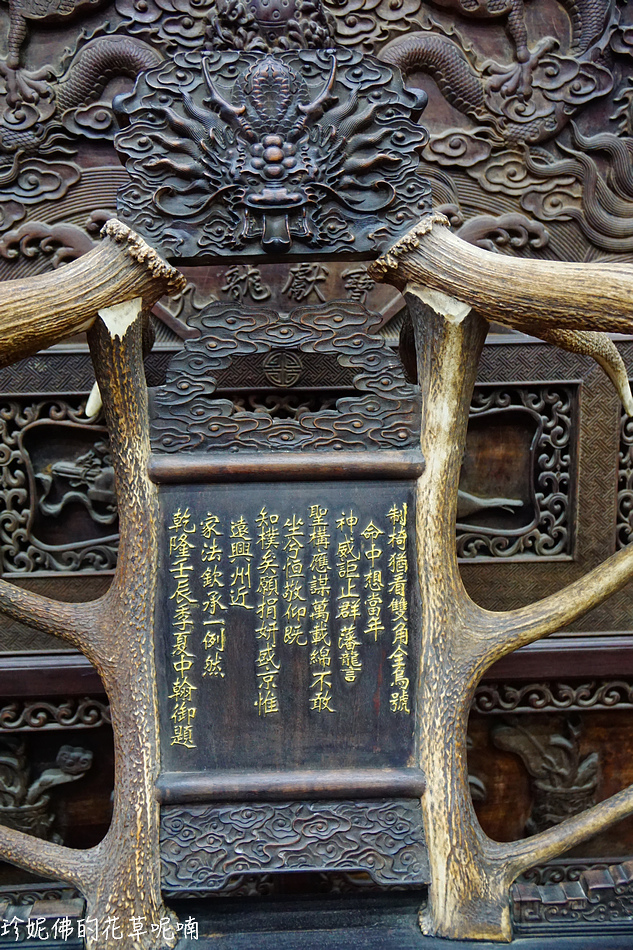 九龍獻寶
制椅猶看雙角全鳥號
命中想當年
神威詎止群藩龍言
聖構應謀萬載綿不敢
坐兮恒敬仰既
知樸矣願捐妍盛京惟
遠興州近
家法欽承一例然
乾隆壬辰季夏中翰御題
珍妮佛的花草呢喃